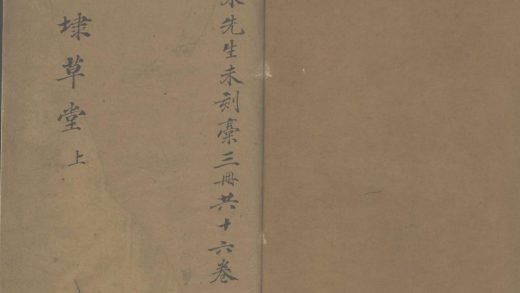 先生未刻稾三冊共十六卷
埭草堂 上